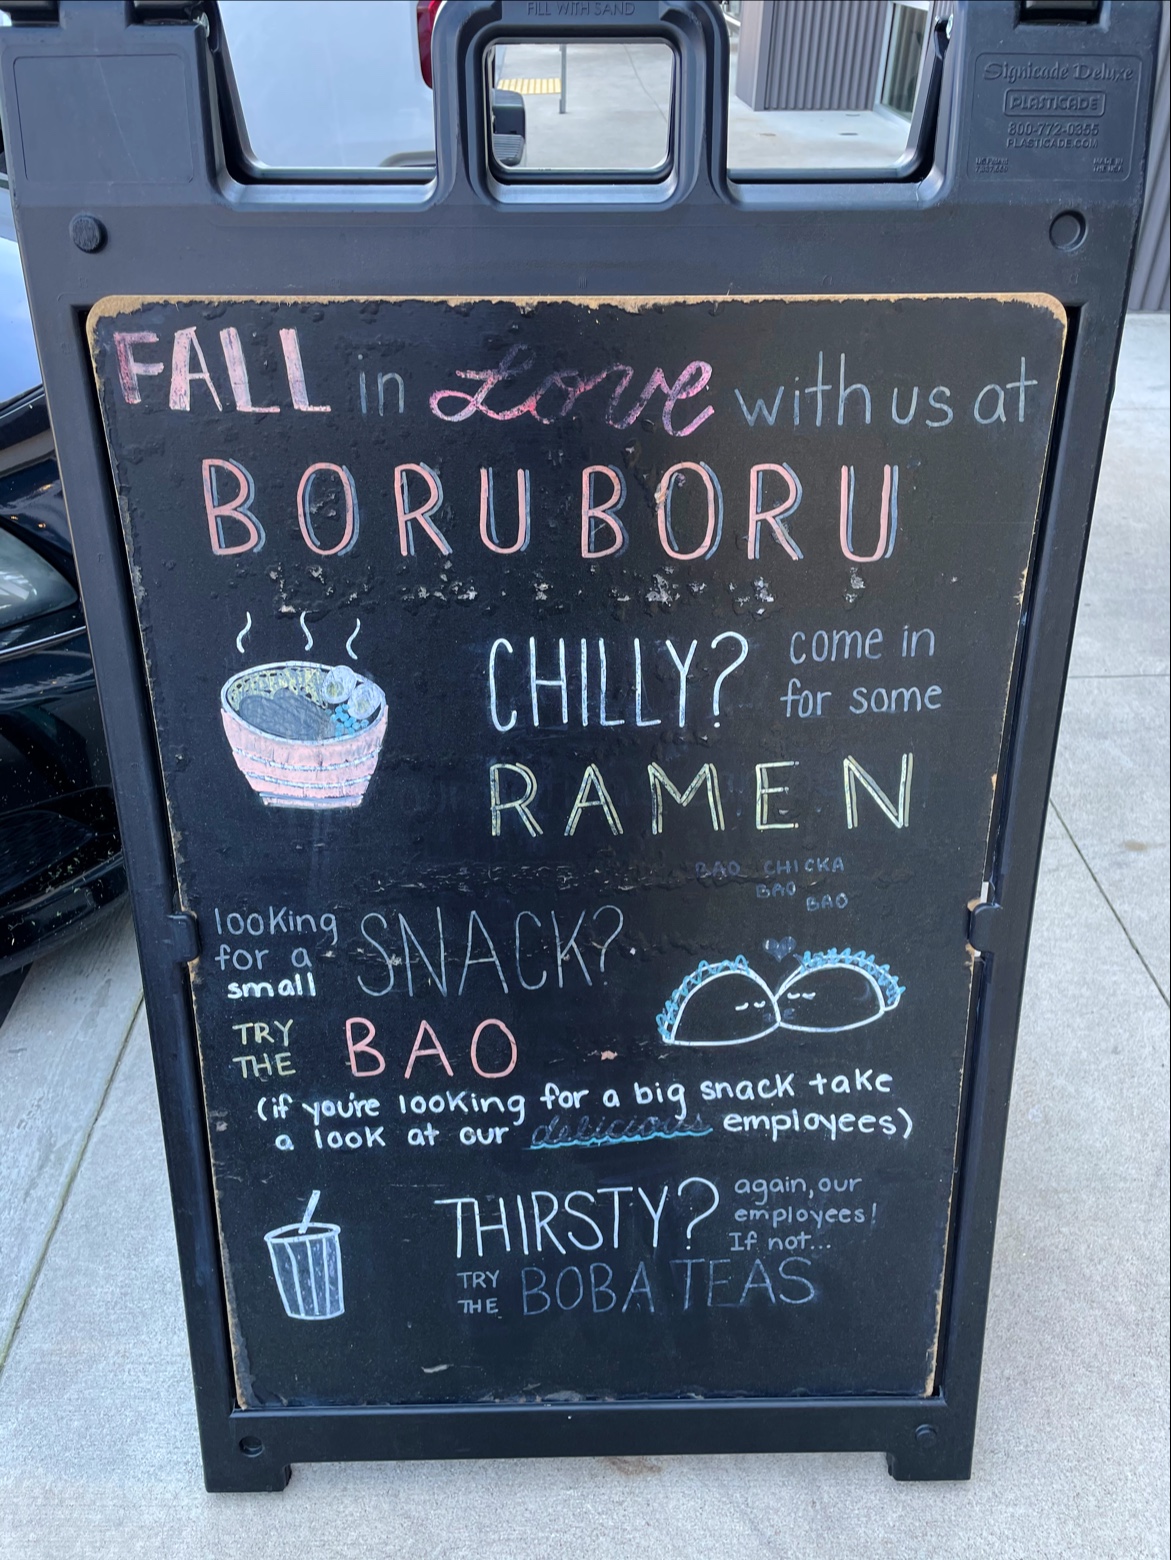 FILL WITH SAND
Signicade Deluxe
PLASTICADE
800-772-0355
PLASTICADE.COM
MADE IN
THE USA
FALL in Love with us at
BORUBORU
CHILLY? come in
for some
RAMEN
BAO CHICKA
BAO
BAO
looking
for a
small
SNACK?
TRY
THE
BAO
(if you're looking for a big snack take
a look at our delicious employees)
THIRSTY?
again, our
employees!
If not...
TRY
THE
BOBA TEAS